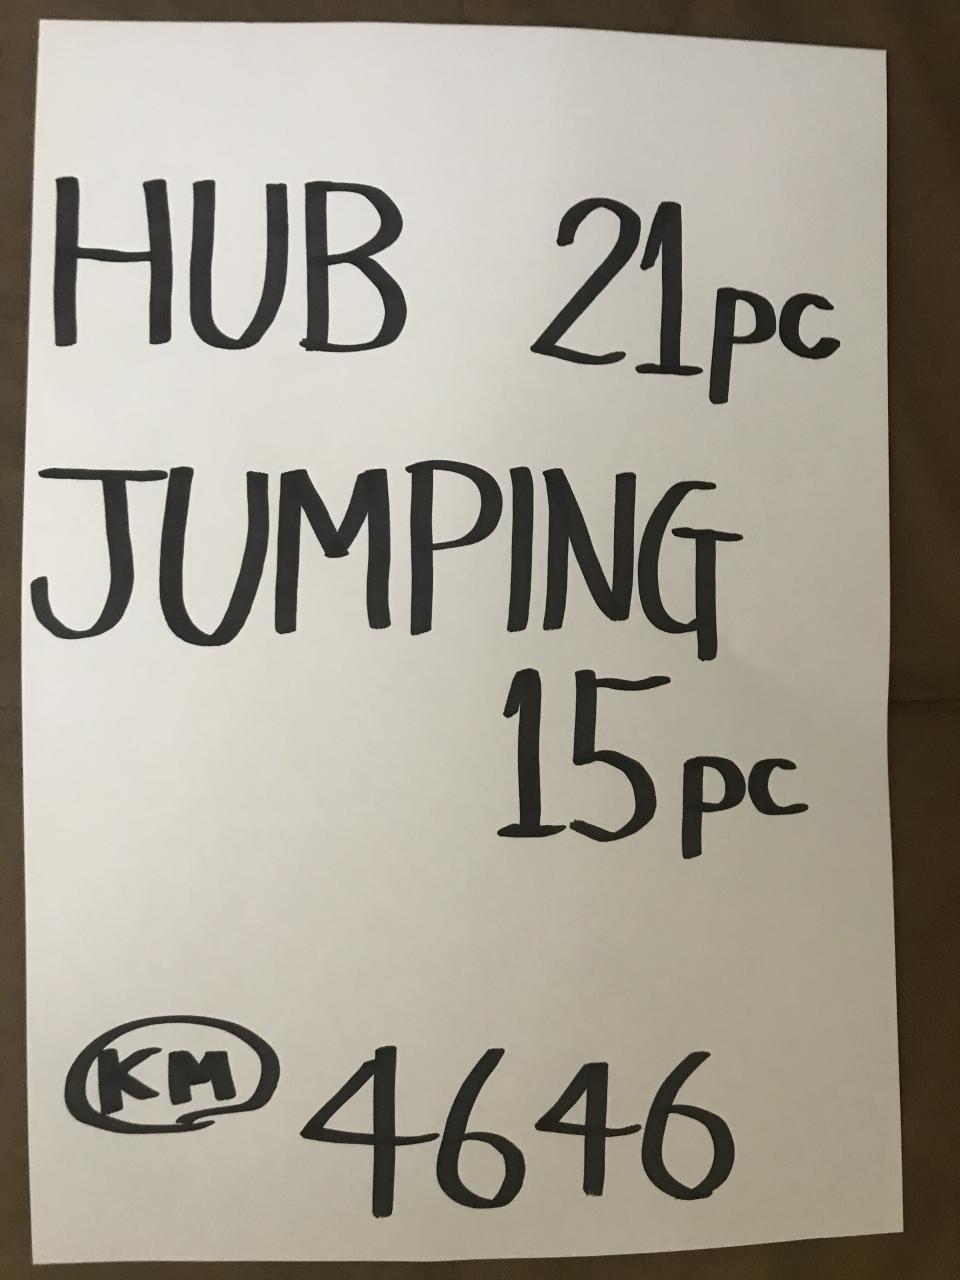 HUB 21pc
JUMPING
15pc
KM 4646